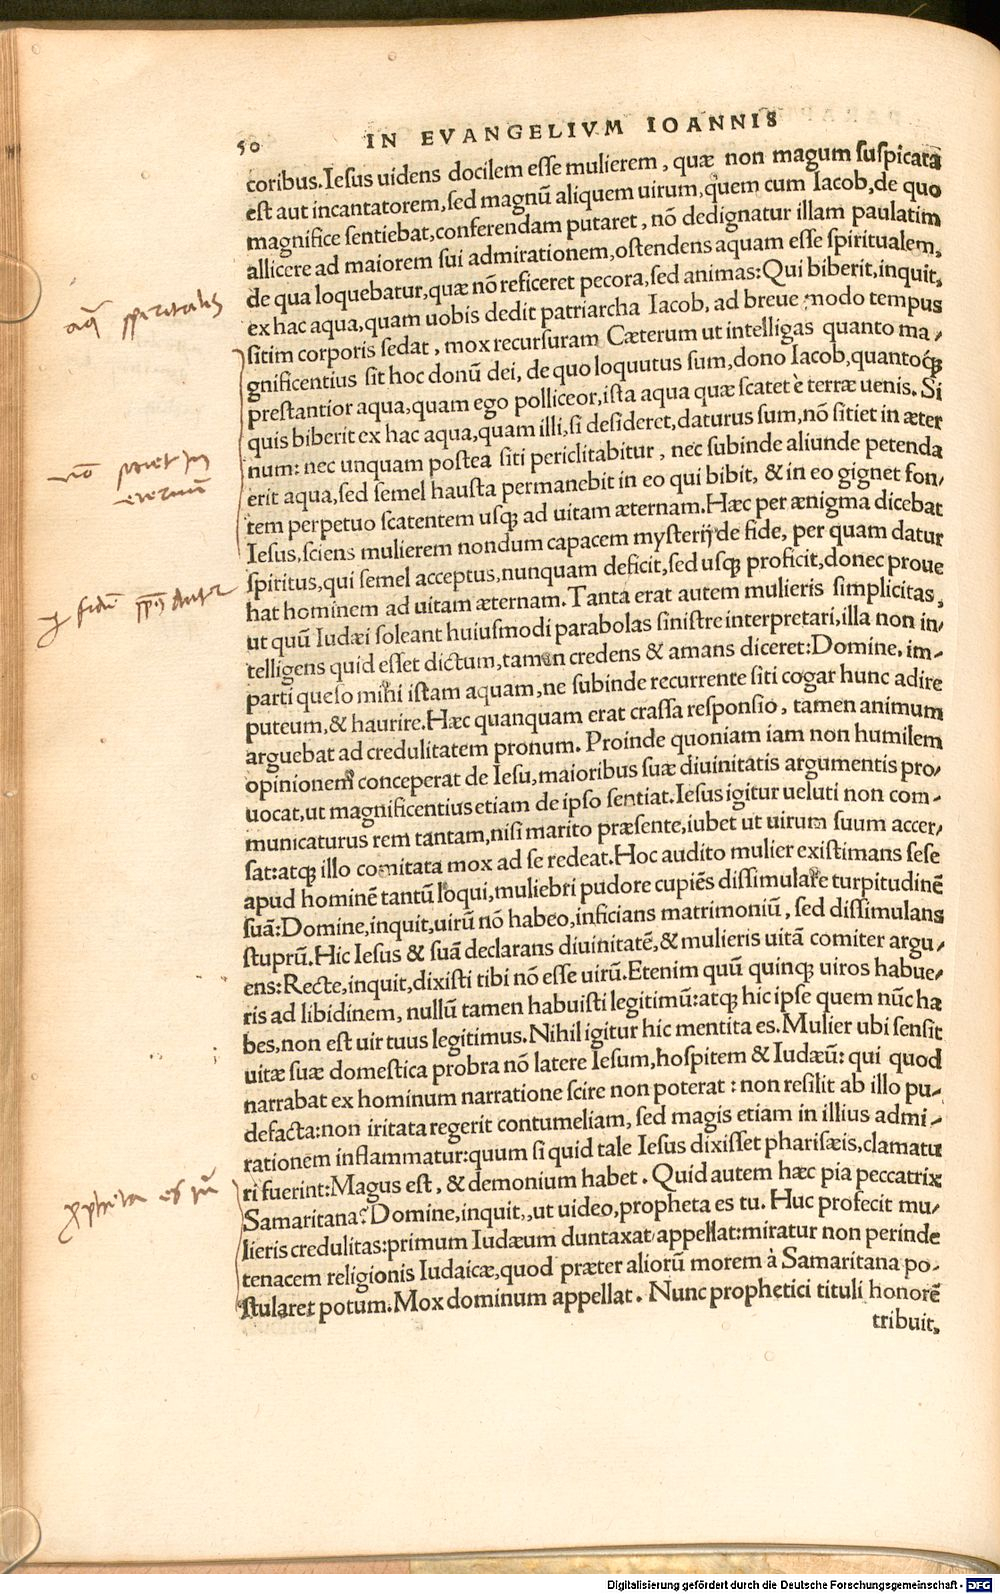 50 IN EVANGELIVM IOANNIS
coribus. Iesus uidens docilem esse mulierem, quæ non magum suspicata
est aut incantatorem, sed magnũ aliquem uirum, quem cum Iacob, de quo
magnifice sentiebat, conferendam putaret, nõ dedignatur illam paulatim
allicere ad maiorem sui admirationem, ostendens aquam esse spiritualem,
de qua loquebatur, quæ nõ reficeret pecora, sed animas: Qui biberit, inquit,
ex hac aqua, quam uobis dedit patriarcha Iacob, ad breue modo tempus
sitim corporis sedat, mox recursuram Cæterum ut intelligas quanto ma/
gnificentius sit hoc donũ dei, de quo loquutus sum, dono Iacob, quantoq́ꝫ
prestantior aqua, quam ego polliceor, ista aqua quæ scatet è terræ uenis. Si
quis biberit ex hac aqua, quam illi, si desideret, daturus sum, nõ sitiet in æter
num: nec unquam postea siti periclitabitur, nec subinde aliunde petenda
erit aqua, sed semel hausta permanebit in eo qui bibit, & in eo gignet fon/
tem perpetuo scatentem usqꝫ ad uitam æternam. Hæc per ænigma dicebat
Iesus, sciens mulierem nondum capacem mysterij de fide, per quam datur
spiritus, qui semel acceptus, nunquam deficit, sed usqꝫ proficit, donec proue
hat hominem ad uitam æternam. Tanta erat autem mulieris simplicitas,
ut quũ Iudæi soleant huiusmodi parabolas sinistre interpretari, illa non in/
telligens quid esset dictum, tamen credens & amans diceret: Domine, im-
parti queso mihi istam aquam, ne subinde recurrente siti cogar hunc adire
puteum, & haurire. Hæc quanquam erat crassa responsio, tamen animum
arguebat ad credulitatem pronum. Proinde quoniam iam non humilem
opinionem conceperat de Iesu, maioribus suæ diuinitatis argumentis pro/
uocat, ut magnificentius etiam de ipso sentiat. Iesus igitur ueluti non com-
municaturus rem tantam, nisi marito præsente, iubet ut uirum suum accer/
sat: atqꝫ illo comitata mox ad se redeat. Hoc audito mulier existimans sese
apud hominẽ tantũ loqui, muliebri pudore cupiẽs dissimulare turpitudinẽ
suã: Domine, inquit, uirũ nõ habeo, inficians matrimoniũ, sed dissimulans
stuprũ. Hic Iesus & suã declarans diuinitatẽ, & mulieris uitã comiter argu/
ens: Recte, inquit, dixisti tibi nõ esse uirũ. Etenim quũ quinqꝫ uiros habue/
ris ad libidinem, nullũ tamen habuisti legitimũ: atqꝫ hic ipse quem nũc ha
bes, non est uir tuus legitimus. Nihil igitur hic mentita es. Mulier ubi sensit
uitæ suæ domestica probra nõ latere Iesum, hospitem & Iudæũ: qui quod
narrabat ex hominum narratione scire non poterat: non resilit ab illo pu-
defacta: non iritata regerit contumeliam, sed magis etiam in illius admi-
rationem inflammatur: quum si quid tale Iesus dixisset pharisæis, clamatu
ri fuerint: Magus est, & demonium habet. Quid autem hæc pia peccatrix
Samaritana? Domine, inquit, ut uideo, propheta es tu. Huc profecit mu/
lieris credulitas: primum Iudæum duntaxat appellat: miratur non perinde
tenacem religionis Iudaicæ, quod præter aliorũ morem à Samaritana po-
stularet potum. Mox dominum appellat. Nunc prophetici tituli honorẽ
tribuit,
nõ in
eternũ
fidẽ
es tu
Digitalisierung gefördert durch die Deutsche Forschungsgemeinschaft - DFG